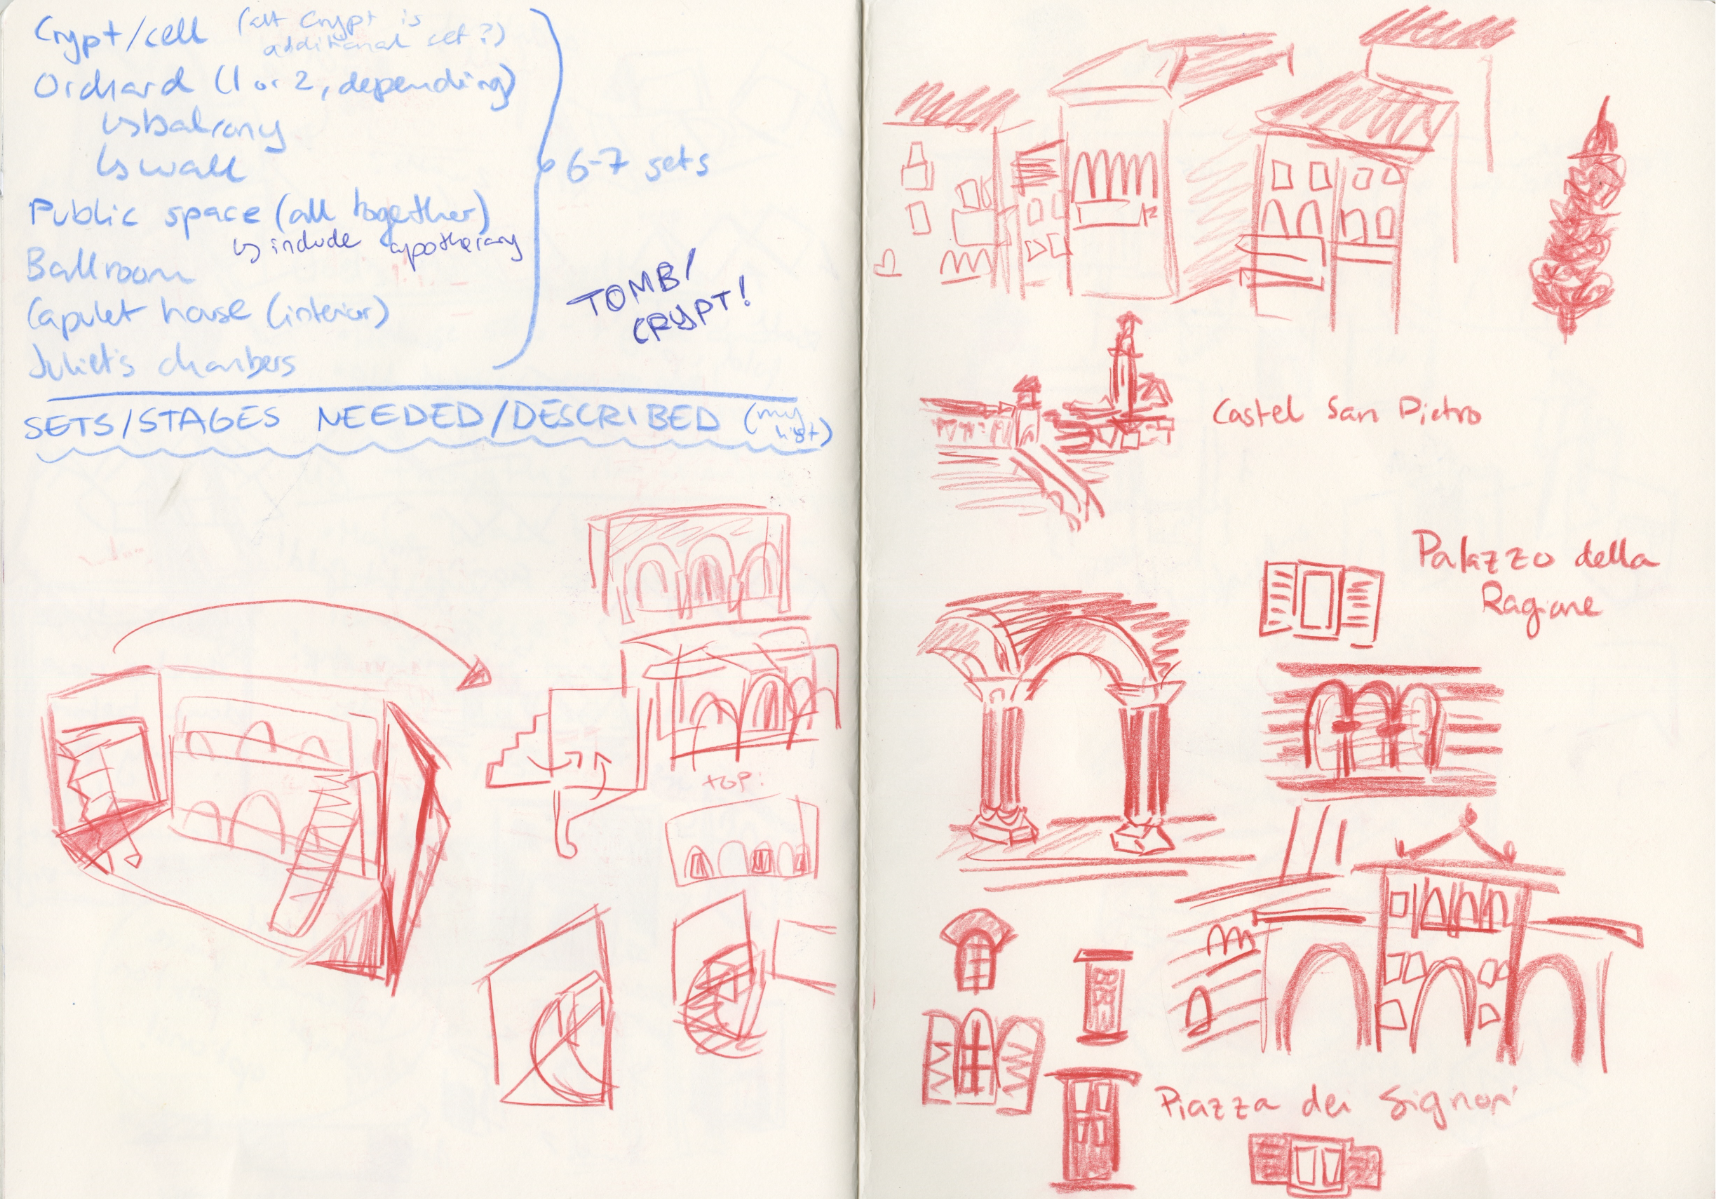 Crypt/cell (alt crypt is
additional set?)
Orchard (1 or 2, depending)
↳ balcony
↳ wall
Public space (all together)
↳ include apothecary
Ballroom
Capulet house (interior)
Juliet's chambers
6-7 sets
TOMB/
CRYPT!
SETS/STAGES NEEDED/DESCRIBED (my
list)
top:
Castel San Pietro
Palazzo della
Ragione
Piazza dei Signori